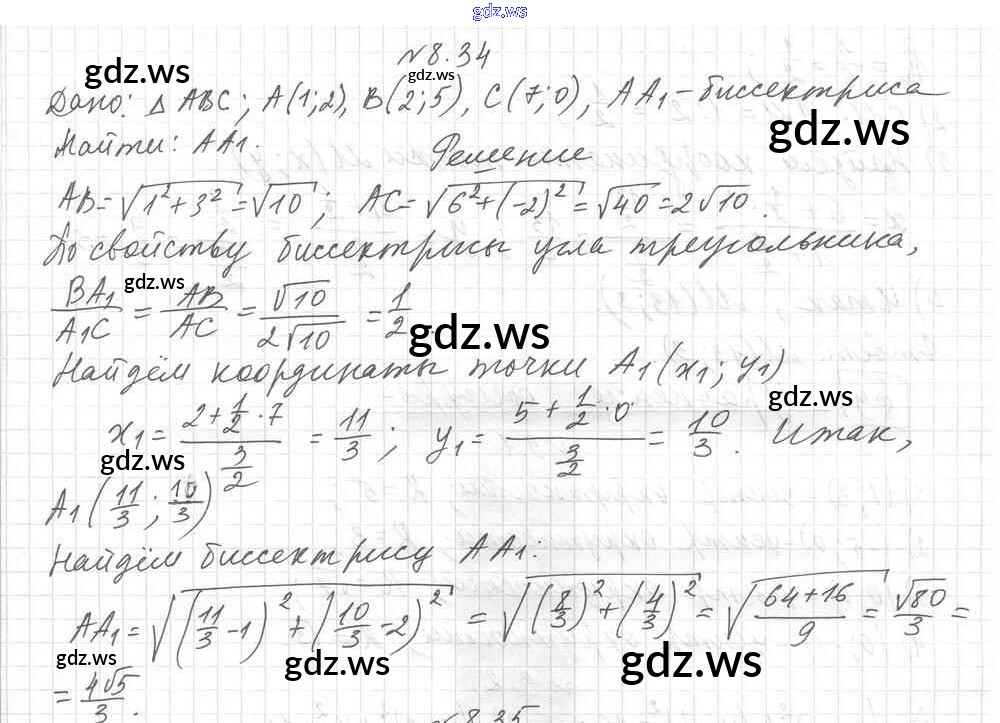 gdz.ws
№8.34
gdz.ws gdz.ws
Дано: △ ABC; A(1;2), B(2;5), C(7;0), AA₁-биссектриса
gdz.ws
Найти: AA₁.
Решение
gdz.ws
AB=√(1²+3²)=√10; AC=√(6²+(-2)²)=√40=2√10.
По свойству биссектрисы угла треугольника,
gdz.ws
BA₁/A₁C = AB/AC = √10/(2√10) = 1/2.
gdz.ws
Найдём координаты точки A₁(x₁; y₁)
gdz.ws
x₁= (2+1/2·7)/(3/2) = 11/3; y₁= (5+1/2·0)/(3/2) = 10/3. Итак,
gdz.ws
A₁(11/3; 10/3)
Найдём биссектрису AA₁:
AA₁=√((11/3-1)²+(10/3-2)²) = √((8/3)²+(4/3)²) = √((64+16)/9) = √80/3 =
gdz.ws gdz.ws gdz.ws
= 4√5/3.
№8.35